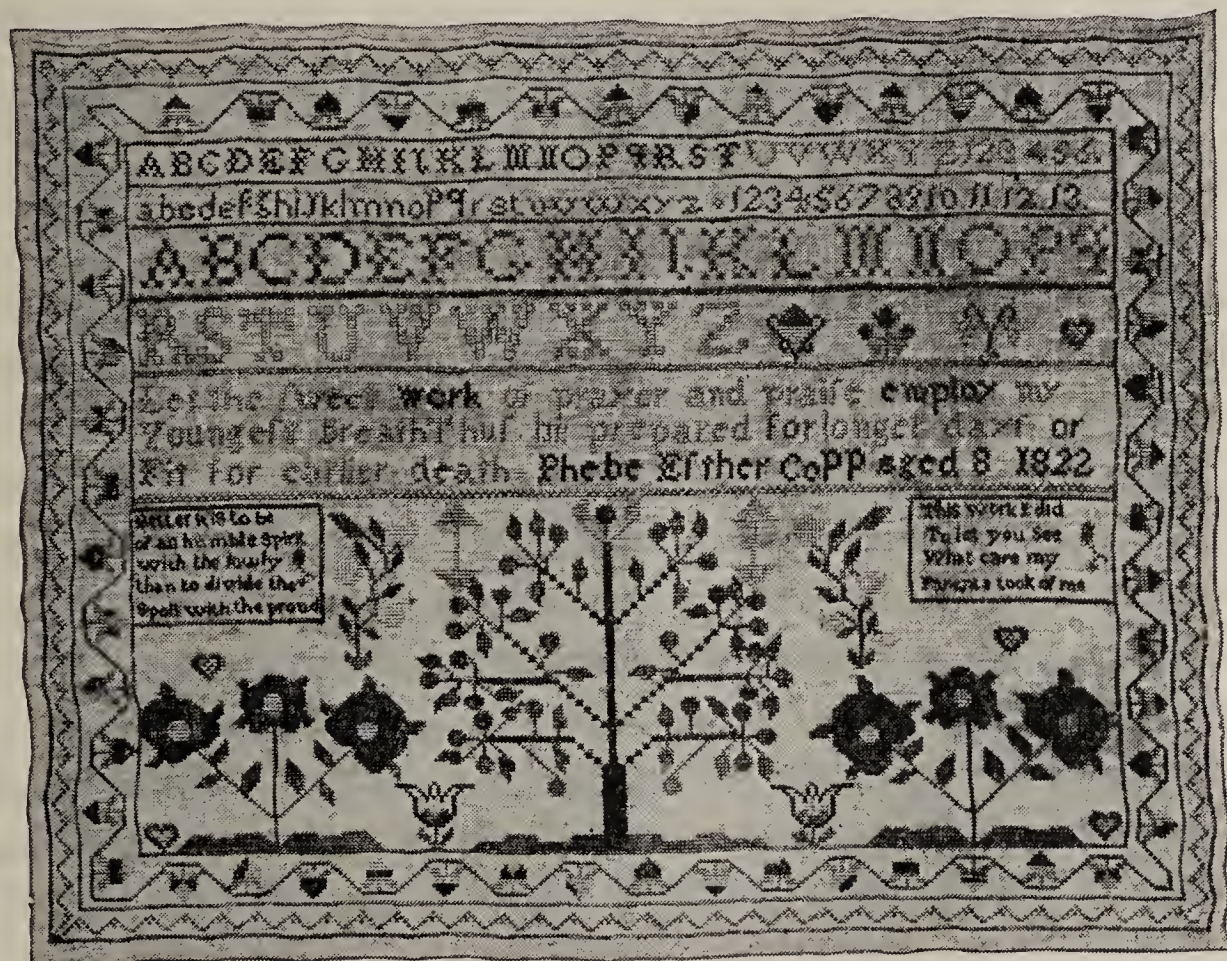 ABCDEFGHIKLMNOPQRSTUVWXYZ123456
abcdefghiJklmnoPqrstuvwxyz 12345678910 11 12 13
ABCDEFGHIJKLMNOPQ
RSTUVWXYZ
Let the ſweet work of prayer and praiſe employ my
Youngeſt Breath Thuſ be prepared for longer dayſ or
Fit for earlier death Phebe Eſther CoPP aged 8 1822
Better it is to be
of an humble Spirit
with the lowly
than to divide the
Spoil with the proud
This work I did
To let you See
What care my
Parents took of me